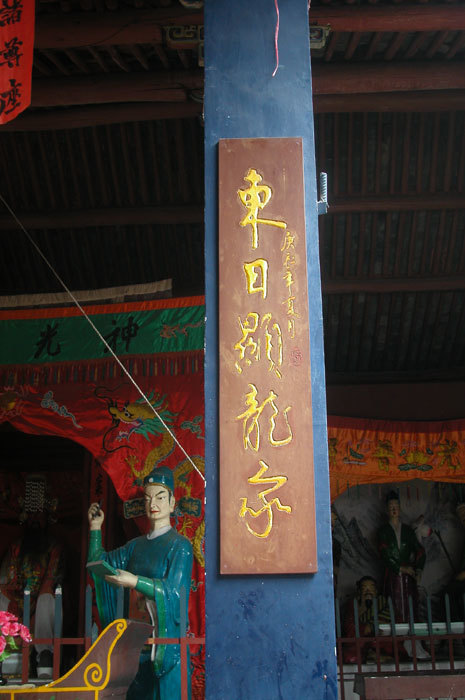 尊座
神光
東日顯龍家
庚辰年夏月